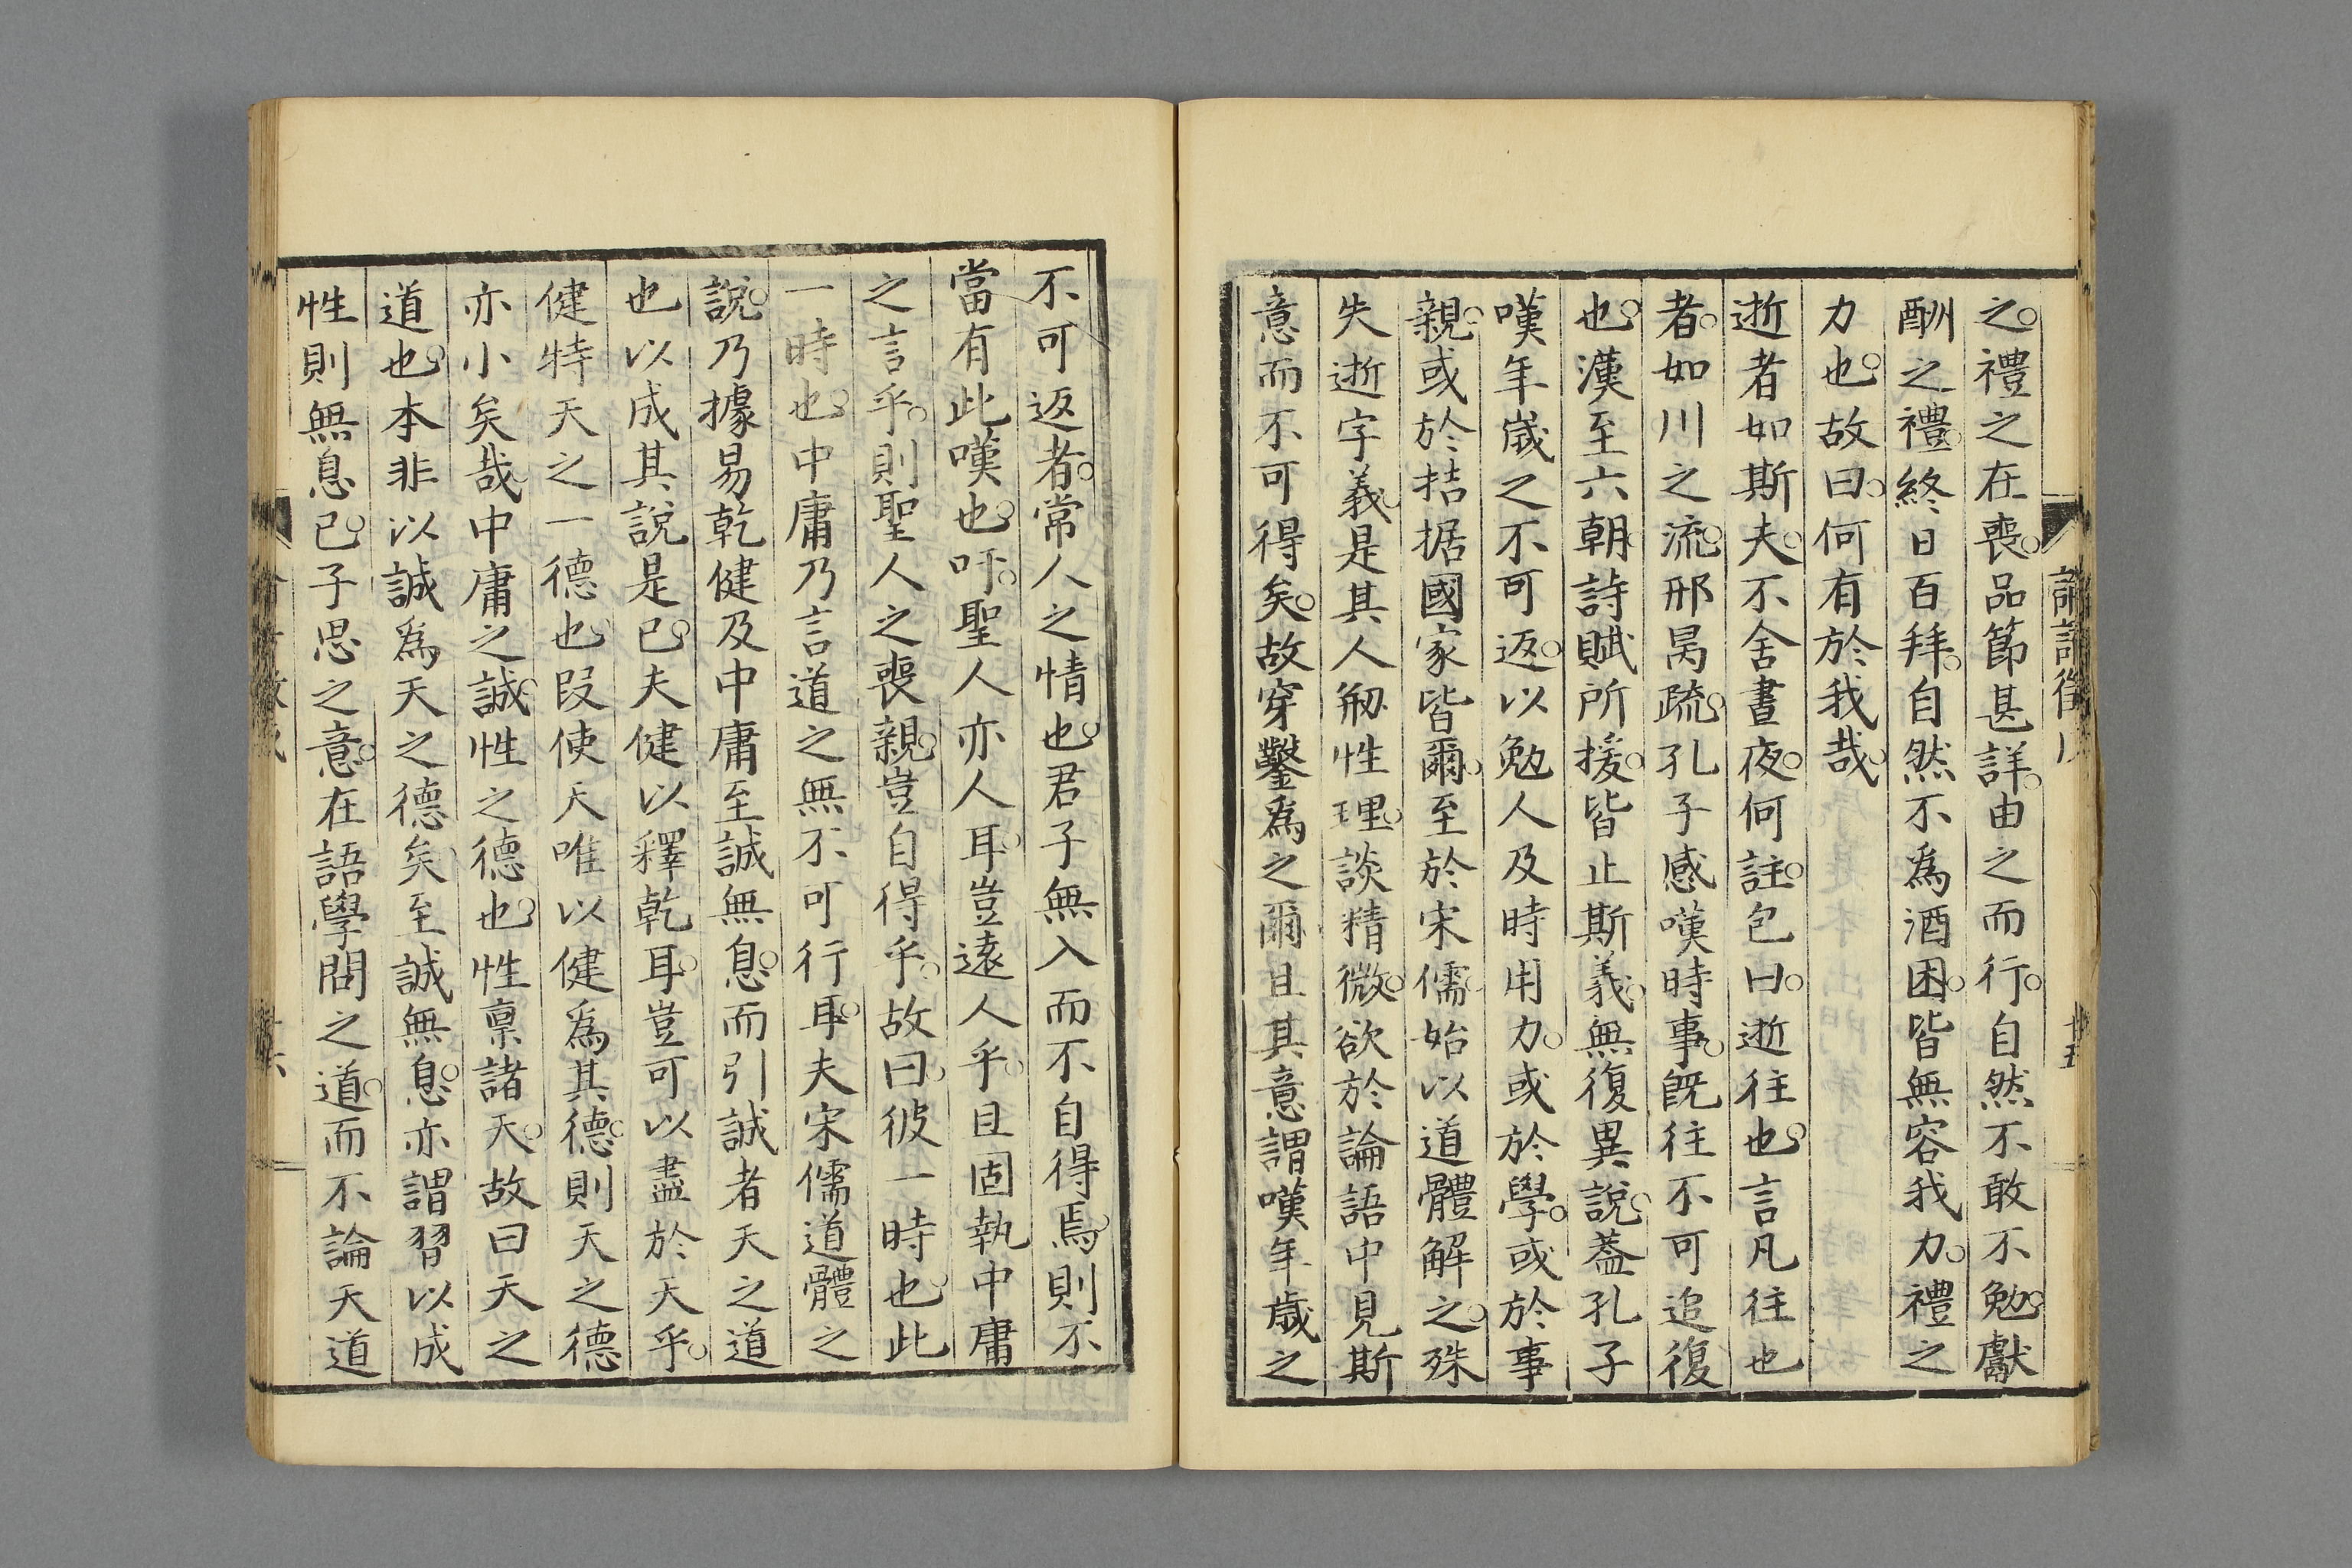 之禮之在喪品節甚詳由之而行自然不敢不勉獻
酬之禮終日百拜自然不為酒困皆無容我力禮之
力也故曰何有於我哉
逝者如斯夫不舍晝夜何註包曰逝往也言凡往也
者如川之流邢昺疏孔子感嘆時事既往不可追復
也漢至六朝詩賦所援皆止斯義無復異說蓋孔子
嘆年歲之不可返以勉人及時用力或於學或於事
親或於拮据國家皆爾至於宋儒始以道體解之殊
失逝字義是其人剏性理談精微欲於論語中見斯
意而不可得矣故穿鑿為之爾且其意謂嘆年歲之
不可返者常人之情也君子無入而不自得焉則不
當有此嘆也吁聖人亦人耳豈遠人乎且固執中庸
之言乎則聖人之喪親豈自得乎故曰彼一時也此
一時也中庸乃言道之無不可行耳夫宋儒道體之
說乃據易乾健及中庸至誠無息而引誠者天之道
也以成其說是已夫健以釋乾耳豈可以盡於天乎
健特天之一德也叚使天唯以健為其德則天之德
亦小矣哉中庸之誠性之德也性稟諸天故曰天之
道也本非以誠為天之德矣至誠無息亦謂習以成
性則無息已子思之意在語學問之道而不論天道